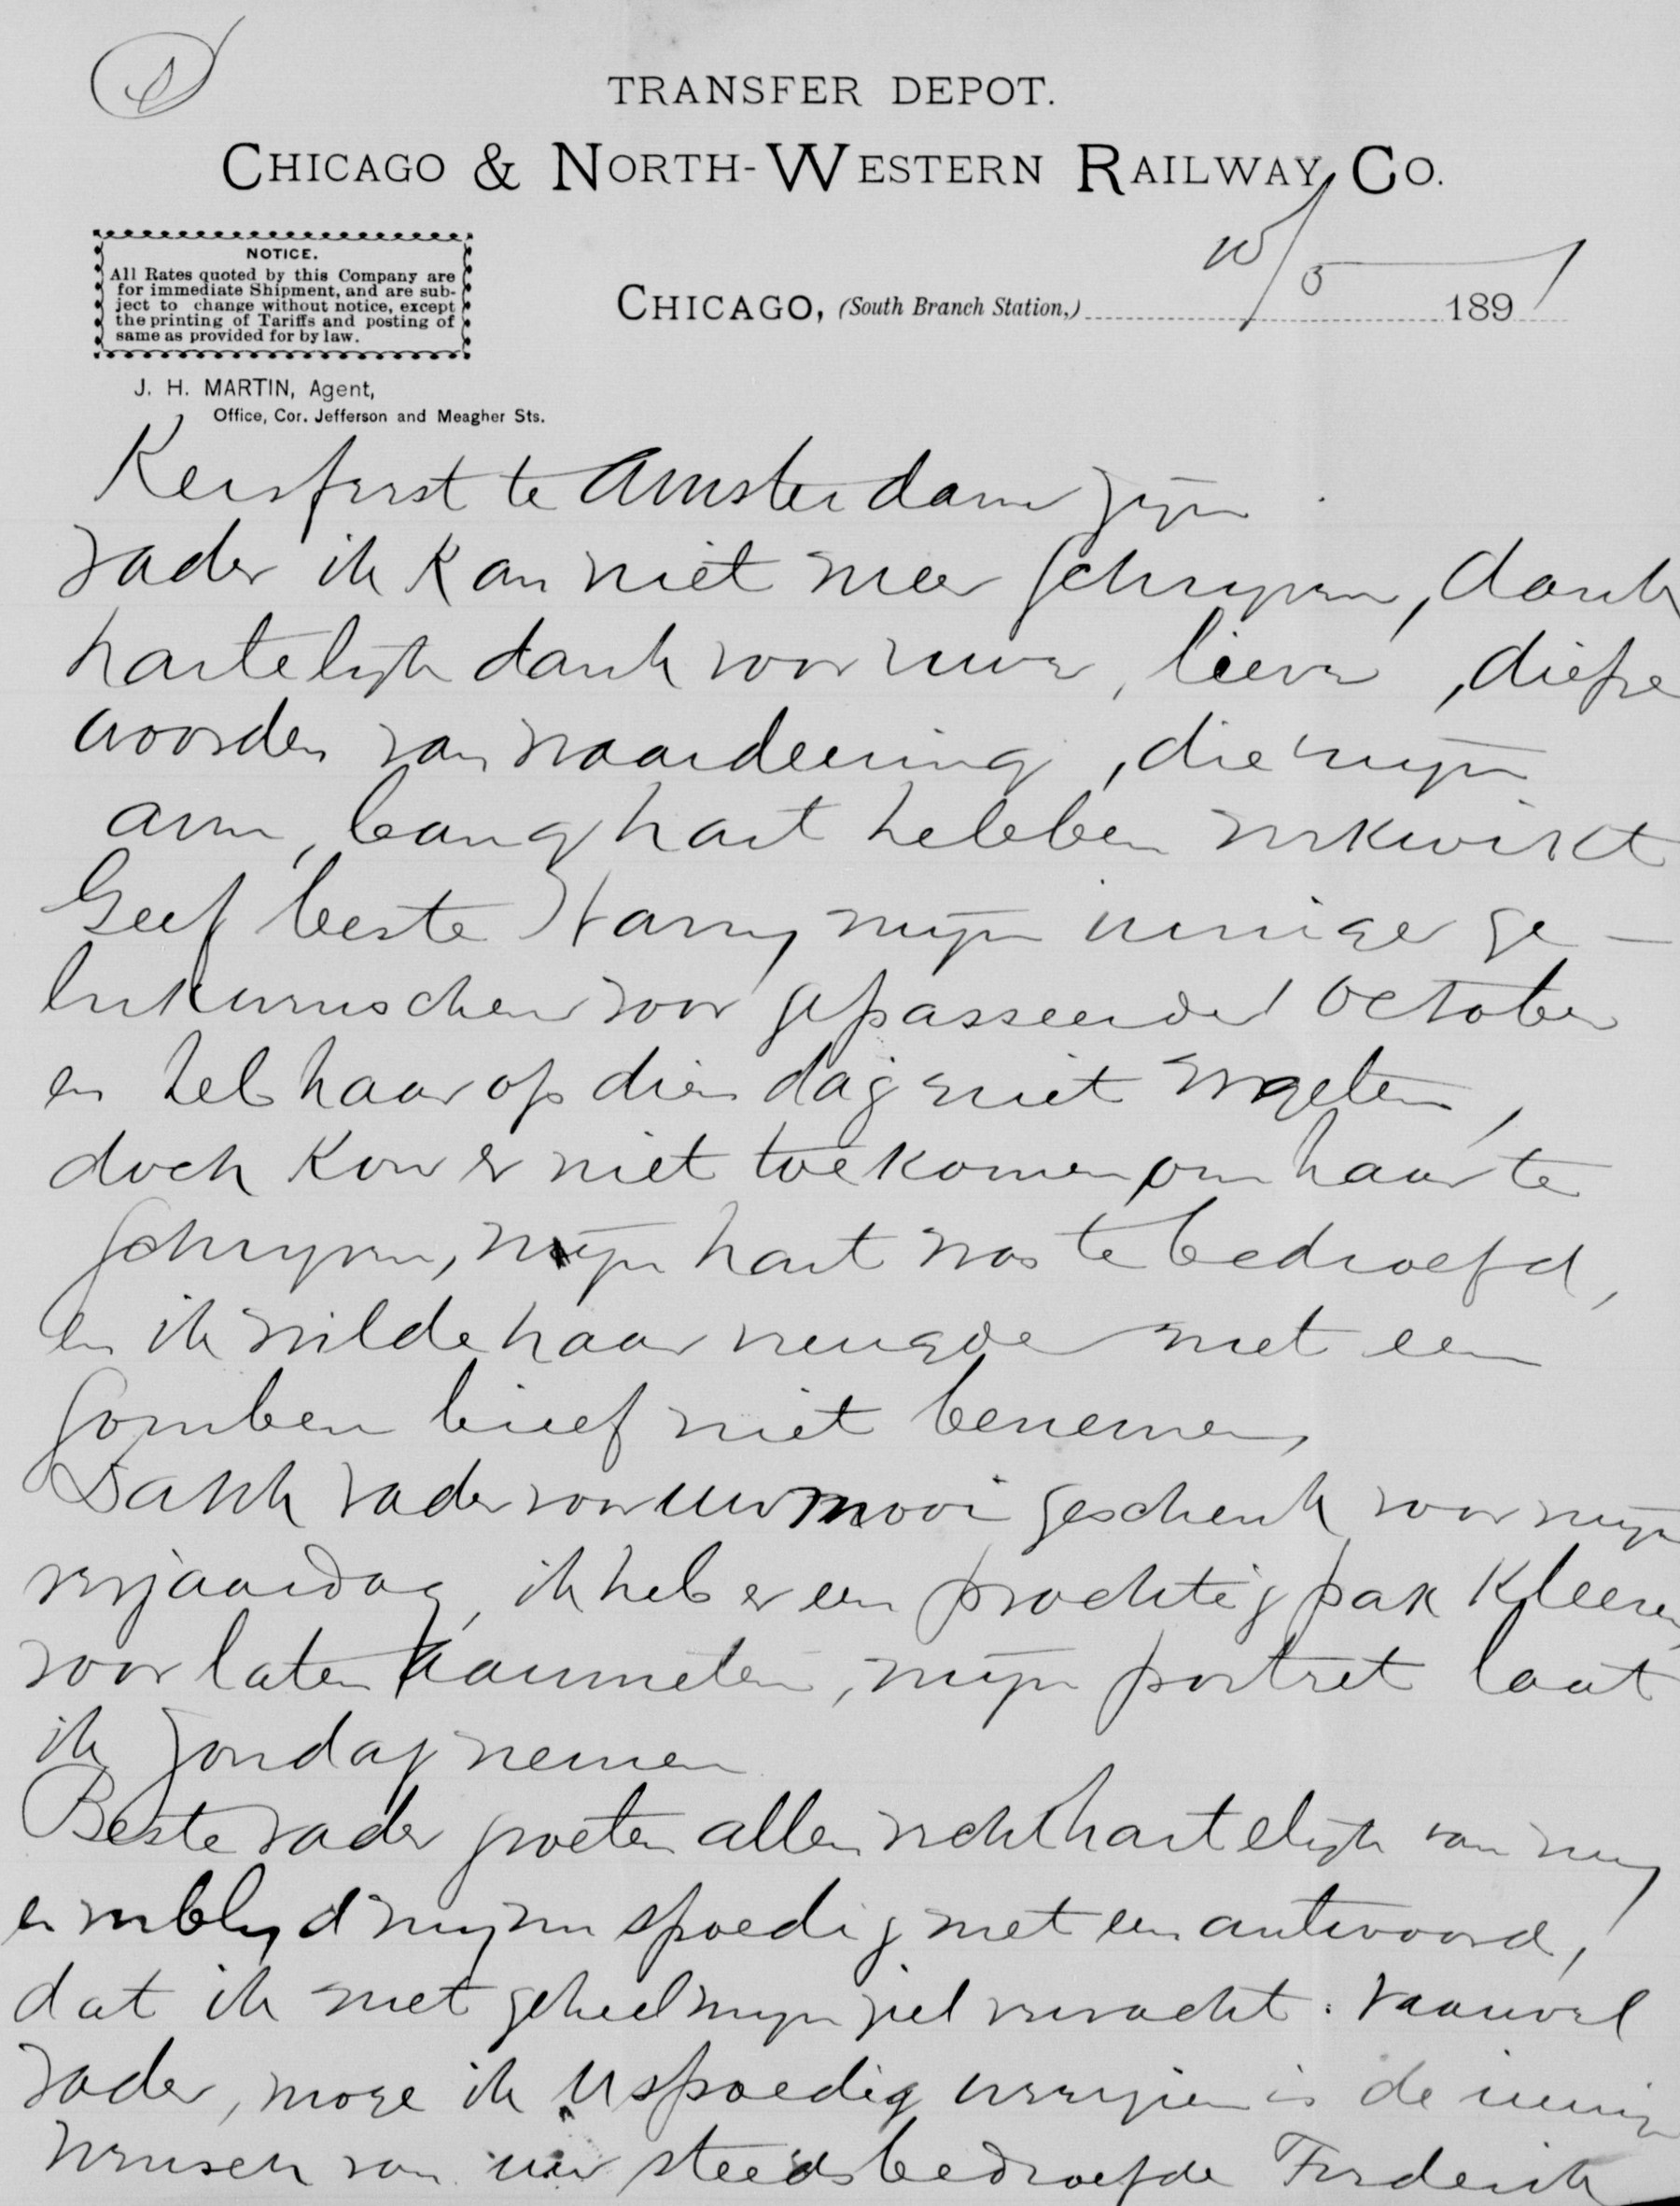 TRANSFER DEPOT.
CHICAGO & NORTH-WESTERN RAILWAY CO.
NOTICE.
All Rates quoted by this Company are
for immediate Shipment, and are sub-
ject to change without notice, except
the printing of Tariffs and posting of
same as provided for by law.
CHICAGO, (South Branch Station,) 10/5 1891
J. H. MARTIN, Agent,
Office, Cor. Jefferson and Meagher Sts.
Kersfeest te Amsterdam zijn
vader ik kan niet meer schrijven, dank
hartelijk dank voor uwe, lieve, diepe
woorden van waardeering, die mijn
arm, bang hart hebben verkwikt
Geef beste Harry mijn innige ge-
lukwenschen voor gepasseerde October
en heb haar op dien dag niet vergeten,
doch kon er niet toe komen om haar te
schrijven, mijn hart was te bedroefd,
en ik wilde haar vreugde met een
somberen brief niet benemen,
Dank vader voor uw mooi geschenk voor mijn
verjaardag, ik heb er een prachtig pak kleeren
voor laten aanmeten, mijn portret laat
ik zondag nemen
Beste vader groeten allen recht hartelijk van mij
en verblijd mij nu spoedig met een antwoord,
dat ik met geheel mijn ziel verwacht. Vaarwel
vader, moge ik U spoedig weerzien is de innige
wensch van uw steeds bedroefde Frederik